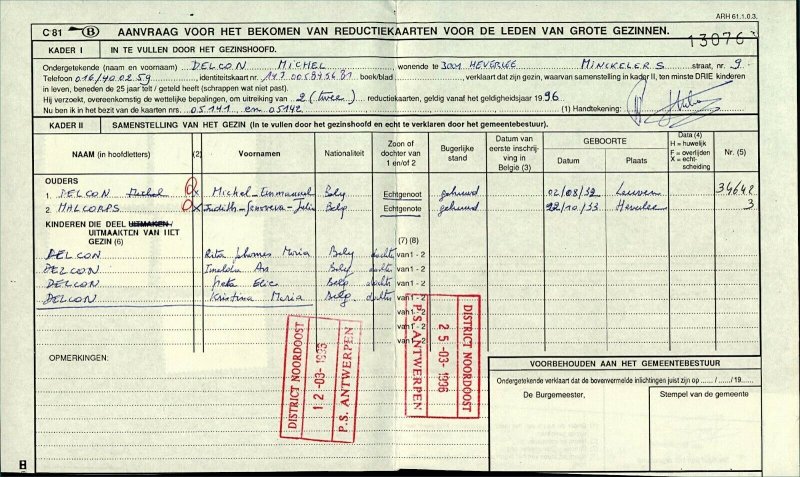 ARH 61.1.0.3.
C 81 B AANVRAAG VOOR HET BEKOMEN VAN REDUCTIEKAARTEN VOOR DE LEDEN VAN GROTE GEZINNEN.
13076
KADER I IN TE VULLEN DOOR HET GEZINSHOOFD.
Ondergetekende (naam en voornaam) DELCON MICHEL wonende te 3001 HEVERLEE MINCKELERS straat, nr. 9.
Telefoon 016/40.02.59, identiteitskaart nr. boek/blad, verklaart dat zijn gezin, waarvan samenstelling in kader II, ten minste DRIE kinderen
in leven, beneden de 25 jaar telt / geteld heeft (schrappen wat niet past).
Hij verzoekt, overeenkomstig de wettelijke bepalingen, om uitreiking van 2 (twee) reductiekaarten, geldig vanaf het geldigheidsjaar 1996.
Nu ben ik in het bezit van de kaarten nrs. 05.141 en 05142. (1) Handtekening:
KADER II SAMENSTELLING VAN HET GEZIN (In te vullen door het gezinshoofd en echt te verklaren door het gemeentebestuur).
NAAM (in hoofdletters) (2) Voornamen Nationaliteit Zoon of dochter van 1 en/of 2 Bugerlijke stand Datum van eerste inschrijving in België (3) GEBOORTE Datum Plaats Data (4) H = huwelijk F = overlijden X = echtscheiding Nr. (5)
OUDERS
1. DELCON Michel x Michel-Emmanuel Belg Echtgenoot gehuwd 02/08/32 Leuven 34642
2. MALCORPS x Judith-Genoveva-Julia Belg Echtgenote gehuwd 22/10/33 Heverlee 3
KINDEREN DIE DEEL UITMAKEN/
UITMAAKTEN VAN HET
GEZIN (6) (7) (8)
DELCON Rita Johannes Maria Belg dochter van 1 - 2
DELCON Imelda An Belg dochter van 1 - 2
DELCON Greta Elie Belg dochter van 1 - 2
DELCON Kristina Maria Belg. dochter van 1 - 2
van 1 - 2
van 1 - 2
van 1 - 2
DISTRICT NOORDOOST
12-03-1996
P.S. ANTWERPEN
DISTRICT NOORDOOST
25-03-1996
P.S. ANTWERPEN
OPMERKINGEN:
VOORBEHOUDEN AAN HET GEMEENTEBESTUUR
Ondergetekende verklaart dat de bovenvermelde inlichtingen juist zijn op ...... / ...... /19......
De Burgemeester, Stempel van de gemeente
B